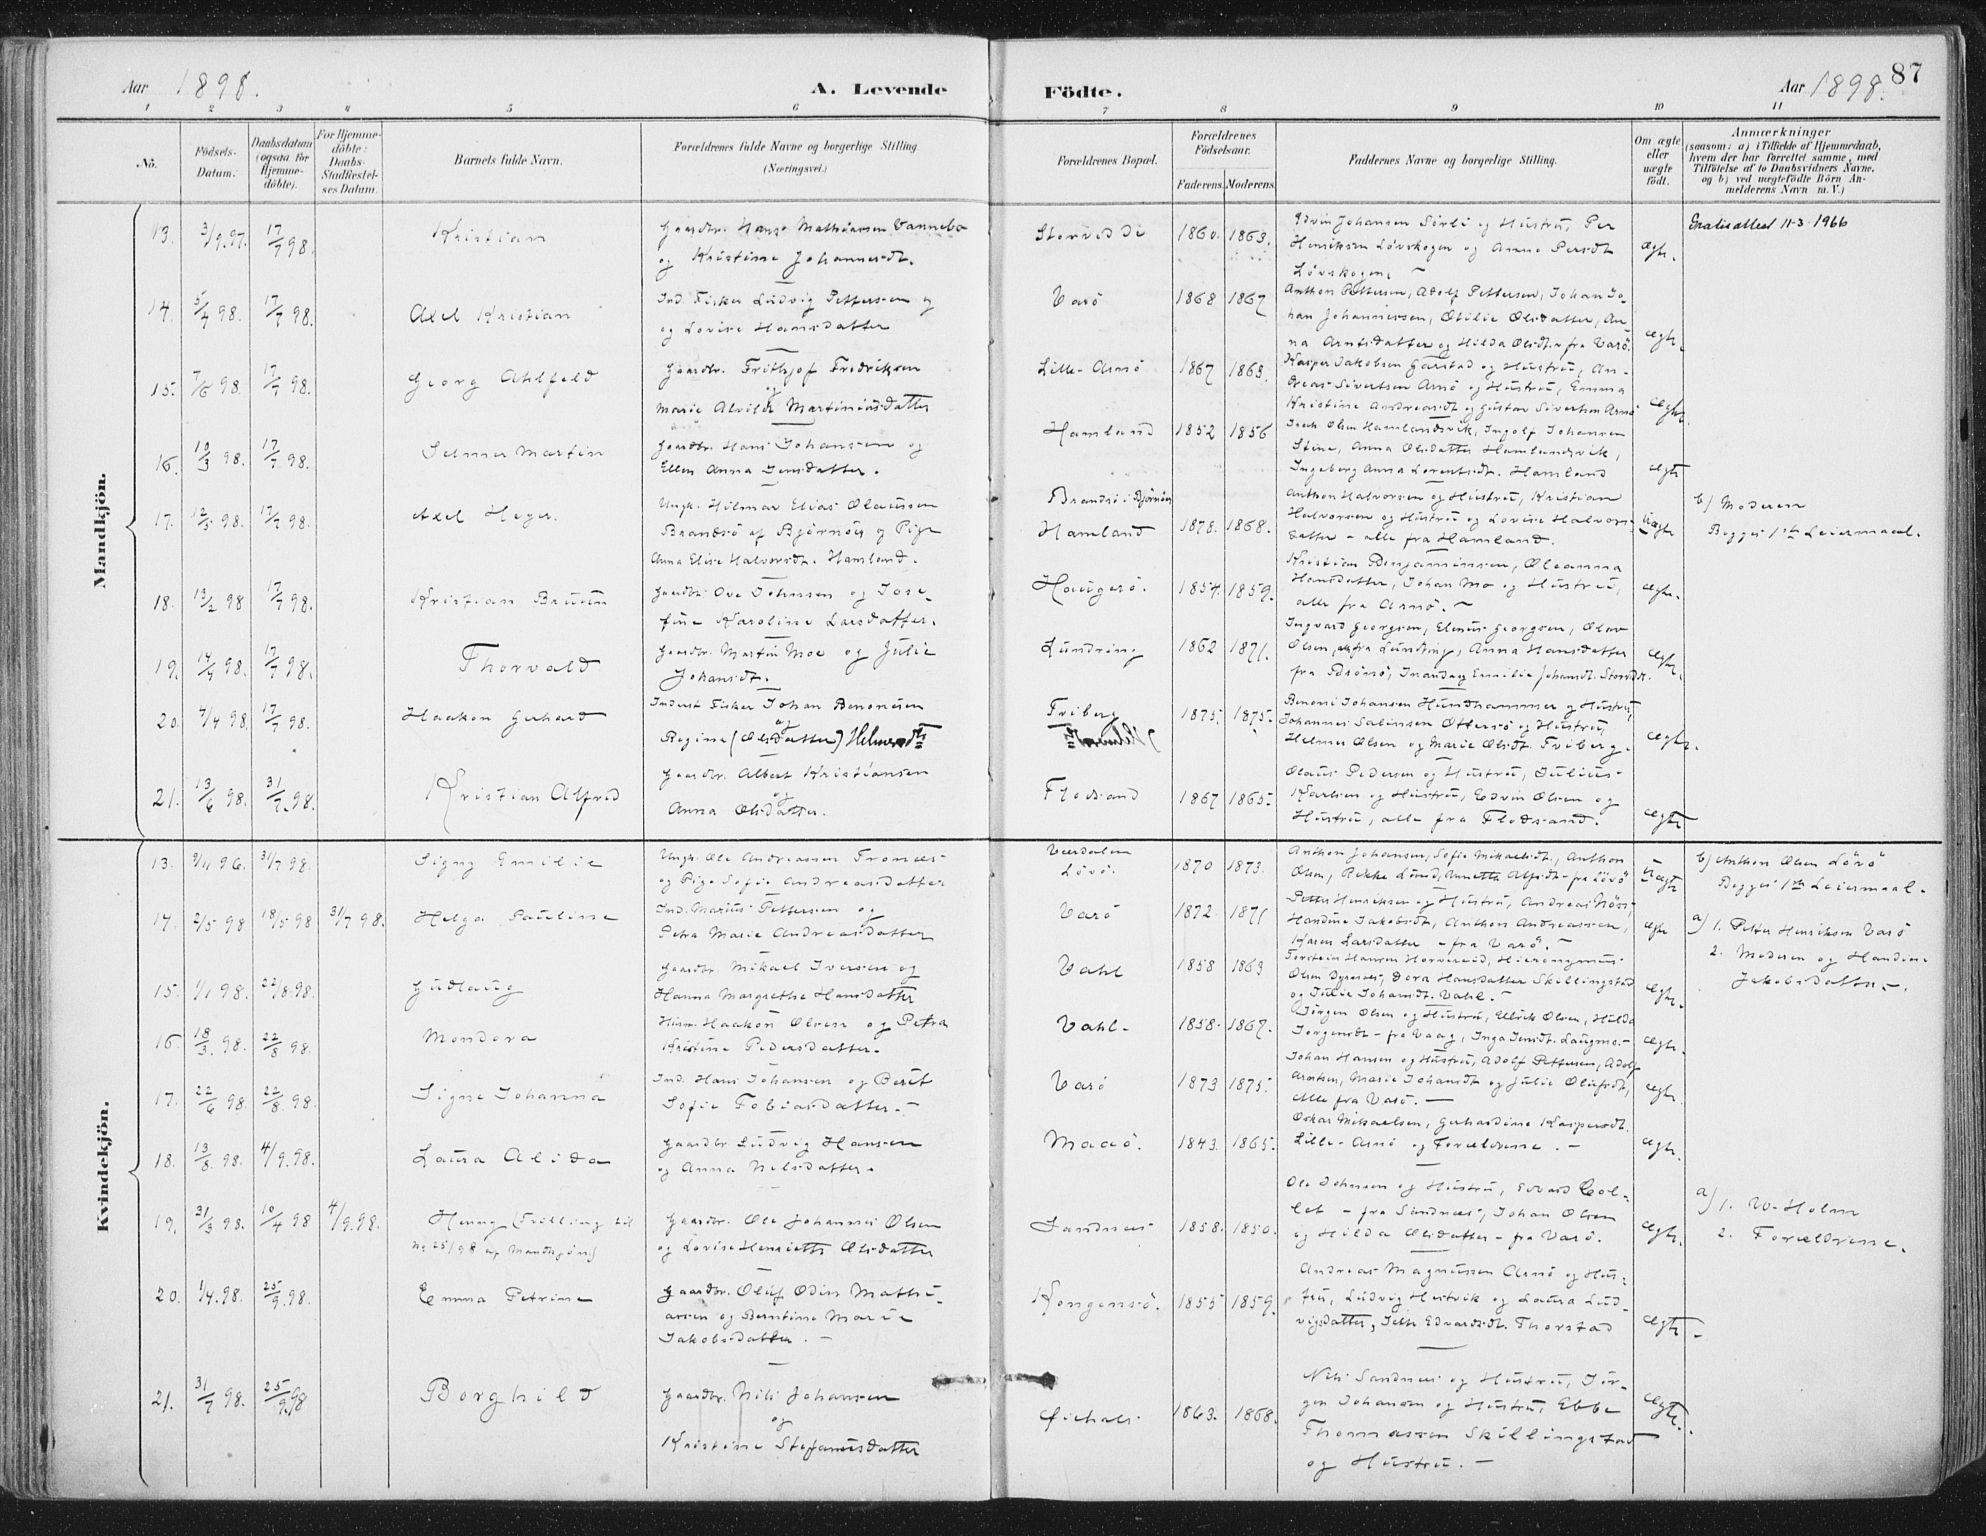 87
Aar 1898.
A. Levende Födte.
Aar 1898.
1 2 3 4 5 6 7 8 9 10 11
No.
Födsels-Datum.
Daabsdatum (ogsaa for Hjemme-döbte).
For Hjemme-döbte: Daabs-Stadfæstel-ses Datum.
Barnets fulde Navn.
Forældrenes fulde Navne og borgerlige Stilling. (Næringsvei.)
Forældrenes Bopæl.
Forældrenes Födselsaar.
Faderens. Moderens.
Faddernes Navne og borgerlige Stilling.
Om ægte eller uægte födt.
Anmærkninger
(saasom: a) i Tilfælde af Hjemmedaab, hvem der har forrettet samme, med Tilföielse af to Daabsvidners Navne, og b) ved uægtefödte Börn An-melderens Navn m. V.)
Mandkjön.
13. 3/9.97. 17/7 98. Kristian
Gaardbr. Hans Mathiassen Vannebo
og Kristine Johannesdt.
1860. 1863.
Edvin Johansen Sörli og Hustru, Per
Henriksen Lövskogen og Anne Persdt
Lövskogen. –
ægte.
11-3-1966
14. 5/4 98. 17/7 98. Axel Kristian
Ind. Fisker Ludvig Pettersen og
og Lovise Hansdatter
Varö 1868 1867
Anthon Pettersen, Adolf Pettersen, Johan Jo-
han Johannessen, Otilie Olsdatter, An-
na Arntsdatter og Hilda Olsdt. fra Varö.
ægte.
15. 7/6 98. 17/7 98. Georg Ahlfeld
Gaardbr. Frithjof Fredriksen
og
Marie Alvilde Martiniusdatter
Lille-Arnö 1867 1863.
Kasper Jakobsen Garstad og Hustru, An-
dreas Sivertsen Arnö og Hustru, Emma
Kristine Andreasdt og Gustav Sivertsen Arnö
ægte
16. 10/3 98. 17/7 98. Selmer Martin
Gaardbr. Hans Johansen og
Ellen Anna Jensdatter.
Hamland 1852 1856
Olsen Hamlandsvik, Ingolf Johansen
Stene, Anna Olsdatter Hamlandsvik,
Ingeborg Anna Lorentsdt. Hamland
ægte
17. 12/5 98. 17/7 98. Axel Heger.
Ungk. Hilmar Elias Olaussen
Brandsö af Björnöer og Pige
Anna Elise Halvorsdt. Hamland.
Brandsö i Björnöer
Hamland 1878. 1868.
Anthon Halvorsen og Hustru, Kristian
Halvorsen og Hustru og Lovise Halvors-
datter – alle fra Hamland.
Uægte
b) Moderen
Begges 1ste Leiermaal.
18. 13/2 98 17/7 98. Kristian Bruun
Gaardbr. Ove Johnsen og Jose-
fine Karoline Larsdatter.
Haugerö. 1854. 1859.
Kristian Benjaminsen, Oleanna
Hansdatter, Johan Mo og Hustru,
alle fra Arnö. –
ægte.
19. 14/4 98. 17/7 98. Thorvald
Gaardbr. Martin Moe og Julie
Johansdt.
Lundring 1862 1871.
Ingvard Georgsen, Elenus Georgsen, Olav
Olsen, fra Lundring, Anna Hansdatter
ægte.
20. 4/4 98. 17/7 98. Haakon Gerhard
Inderst Fisker Johan Benonisen
og
Regine (Olsdatter) Helmersdtr
Friberg 1875. 1875.
Benoni Johansen Hundhammer og Hustru,
Johannes Salinsen Ottersö og Hustru,
Helmer Olsen og Marie Olsdt. Friberg.
ægte.
21. 13/6 98. 31/7.98. Kristian Alfred
Gaardbr. Albert Kristiansen
og
Anna Olsdatter.
Flodsand 1867 1865.
Olaus Pedersen og Hustru, Julius
Karlsen og Hustru, Edvin Olsen og
Hustru, alle fra Flodsand.
ægte
Kvindekjön.
13. 9/11 96. 31/7 98. Signy Emilie
Ungk. Ole Andreassen Fromæs
og Pige Sofie Andreasdatter
Værdalen
Lövö. 1870 1873.
Anthon Johansen, Sofie Mikaelsdt., Anthon
Olsen, Rikke Lund, fra Lövö
Uægte
b) Anthon Olsen Lövö
Begges 1ste Leiermaal.
14. 2/5 98 18/5 98 31/7 98. Helga Pauline
Ind. Marius Pettersen og
Petra Marie Andreasdatter
Varö 1872. 1871
Petter Henriksen og Hustru, Andreas Næss,
Handine Jakobsdt, Anthon Andreassen,
Karen Larsdatter – fra Varö. –
ægte
a) 1. Petter Henriksen Varö
2. Moderen og Handine
Jakobsdatter.
15. 1/1 98. 22/8.98. Gudlaug
Gaardbr. Mikael Iversen og
Hanna Margrethe Hansdatter
Vahl 1858 1863
Torstein Hansen Horvereid, Hieronymus
Olsen Dyrenes, Dora Hansdatter Skillingstad
og Julie Johansdt. Vahl. –
ægte.
16. 18/3. 98. 22/8 98. Mendora
Husm. Haakon Olsen og Petra
Kristine Pedersdatter.
Vahl- 1858. 1867.
Jörgen Olsen og Hustru, Ellrik Olsen, Hulda
Jorgensdt – fra Vaag, Inga Jensdt. Laugmo. –
ægte.
17. 22/6 98. 22/8. 98. Signe Johanna
Ind. Hans Johansen og Berit
Sofie Tobiasdatter. –
Varö 1873 1875.
Johan Hansen og Hustru, Adolf Pettersen, Adolf
Arntsen, Marie Johansdt og Julie Olufsdt,
alle fra Varö. –
ægte.
18. 13/8. 98. 4/9.98. Laura Alida
Gaardbr Ludvig Hansen
og Anna Nilsdatter.
Maaö. 1843. 1865.
Oskar Mikaelsen, Gerhardine Kaspersdt.
Lille-Arnö og Forældrene. –
ægte.
19. 31/3 98. 10/4 98 4/9.98. Henny (Tvilling til
No 25/98 af Mandkjön)
Gaardbr. Ole Johannes Olsen
og Lovise Henriette Olsdatter
Sandnes 1858. 1850.
Ole Johnsen og Hustru, Edvard Col-
let – fra Sandnes, Johan Olsen
og Hilda Olsdatter – fra Varö.
ægte.
a) 1. W. Holm
2. Forældrene.
20. 1/4.98. 25/9.98. Emma Petrine
Gaardbr. Oluf Odin Mathi-
assen og Berntine Marie
Jakobsdatter. –
Kongensö. 1855 1859.
Andreas Magnussen Arnö og Hus-
tru, Ludvig Hestvik og Laura Lud-
vigsdatter, Edvardsdt. Thorstad
ægte.
21. 31/7 98. 25/9.98 Borghild
Gaardbr. Nils Johansen
og
Kristine Stefanusdatter
1863. 1868.
Nils Sandnes og Hustru, Jör-
gen Johansen og Hustru, Ebbe
Thomassen Skillingstad
og Hustru. –
ægte.